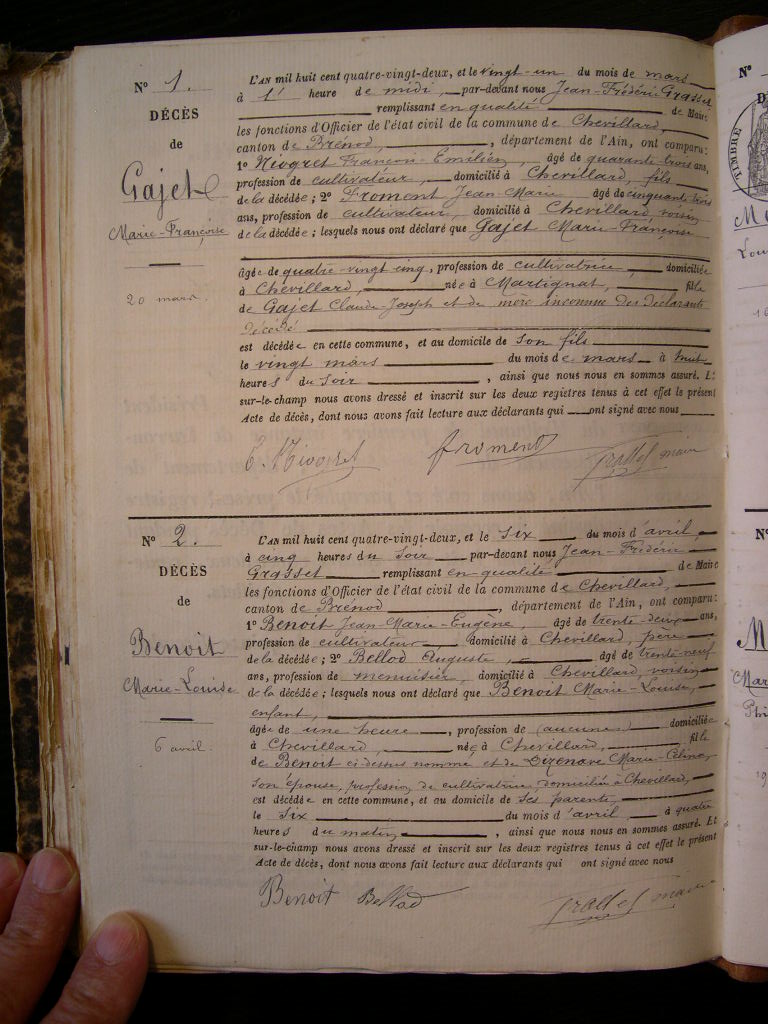 N° 1.
DÉCÈS
de
Gajet
Marie-Françoise
20 mars.
L'AN mil huit cent quatre-vingt-deux, et le vingt-un du mois de mars
à 1 heure de midi, par-devant nous Jean-Frédéric Grasset
remplissant en qualité de Maire
les fonctions d'Officier de l'état civil de la commune de Chevillard,
canton de Brénod, département de l'Ain, ont comparu:
1° Niogret François-Emilien, âgé de quarante trois ans,
profession de cultivateur, domicilié à Chevillard, fils
de la décédée; 2° Froment Jean-Marie âgé de cinquante-trois
ans, profession de cultivateur, domicilié à Chevillard, voisin
de la décédée; lesquels nous ont déclaré que Gajet Marie-Françoise
âgée de quatre-vingt cinq, profession de cultivatrice, domiciliée
à Chevillard, née à Martignat, fille
de Gajet Claude Joseph et de mère inconnue des déclarants
décédé
est décédée en cette commune, et au domicile de son fils
le vingt mars du mois de mars à huit
heures du soir, ainsi que nous nous en sommes assuré. Et
sur-le-champ nous avons dressé et inscrit sur les deux registres tenus à cet effet le présent
Acte de décès, dont nous avons fait lecture aux déclarants qui ont signé avec nous
E. Niogret froment Grasset maire
N° 2.
DÉCÈS
de
Benoit
Marie-Louise
6 avril.
L'AN mil huit cent quatre-vingt-deux, et le six du mois d'avril
à cinq heures du soir par-devant nous Jean-Frédéric
Grasset remplissant en qualité de Maire
les fonctions d'Officier de l'état civil de la commune de Chevillard,
canton de Brénod, département de l'Ain, ont comparu:
1° Benoit Jean-Marie-Eugène, âgé de trente-deux ans,
profession de cultivateur domicilié à Chevillard, père
de la décédée; 2° Bellod Auguste, âgé de trente-neuf
ans, profession de menuisier, domicilié à Chevillard, voisin
de la décédée; lesquels nous ont déclaré que Benoit Marie-Louise,
enfant,
âgée de une heure, profession de (aucune) domiciliée
à Chevillard, née à Chevillard, fille
de Benoit ci-dessus nommé et de Marie-Céline,
son épouse, profession de cultivatrice, domiciliée à Chevillard,
est décédée en cette commune, et au domicile de ses parents,
le six du mois d'avril à quatre
heures du matin, ainsi que nous nous en sommes assuré. Et
sur-le-champ nous avons dressé et inscrit sur les deux registres tenus à cet effet le présent
Acte de décès, dont nous avons fait lecture aux déclarants qui ont signé avec nous
Benoit Bellod Grasset maire
N°
TIMBRE